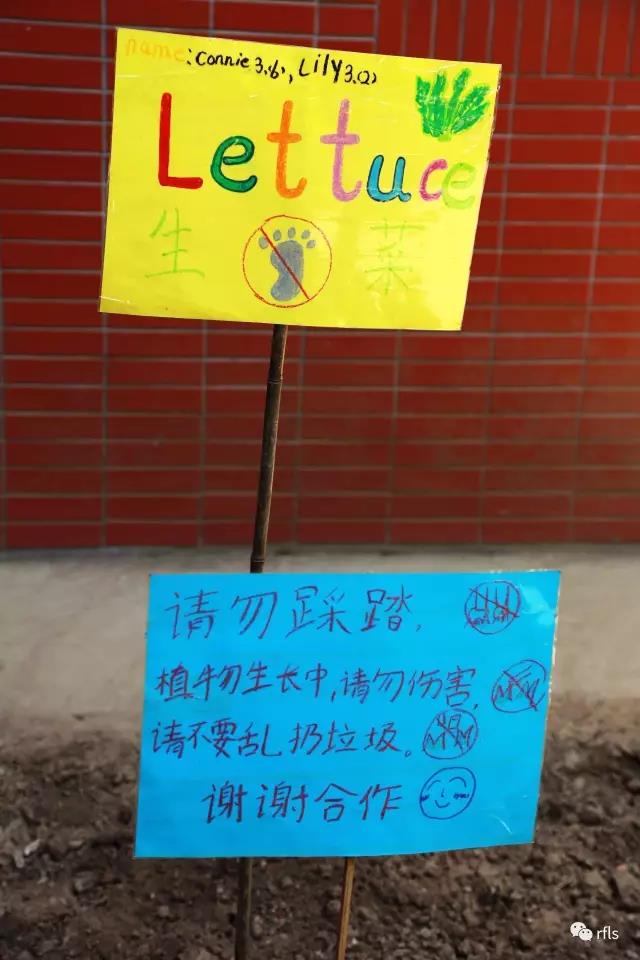 name: Connie 3.(6), Lily 3.(2)
Lettuce
生 菜
请勿踩踏,
植物生长中,请勿伤害,
请不要乱扔垃圾。
谢谢合作
rfls